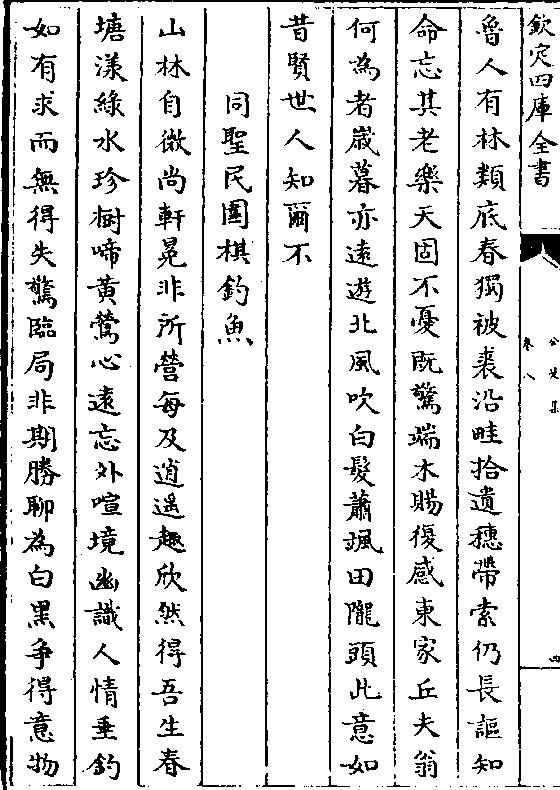 欽定四庫全書
公是集
卷八
四
魯人有林類底春獨被裘沿畦拾遺穗帶索仍長謳知
命忘其老樂天固不憂既驚端木賜復感東家丘夫翁
何為者嵗暮亦遠遊北風吹白髮蕭颯田隴頭此意如
昔賢世人知爾不
同聖民圍棋釣魚
山林自微尚軒冕非所營每及逍遥趣欣然得吾生春
塘漾綠水珍樹啼黃鶯心遠忘外喧境幽識人情垂釣
如有求而無得失驚臨局非期勝聊為白黒争得意物